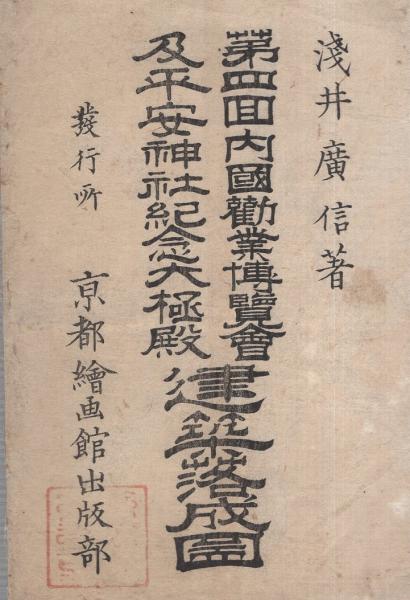 淺井廣信著
第四回内國勸業博覽會
及平安神社紀念大極殿
建築落成圖
發行所 京都繪画館出版部